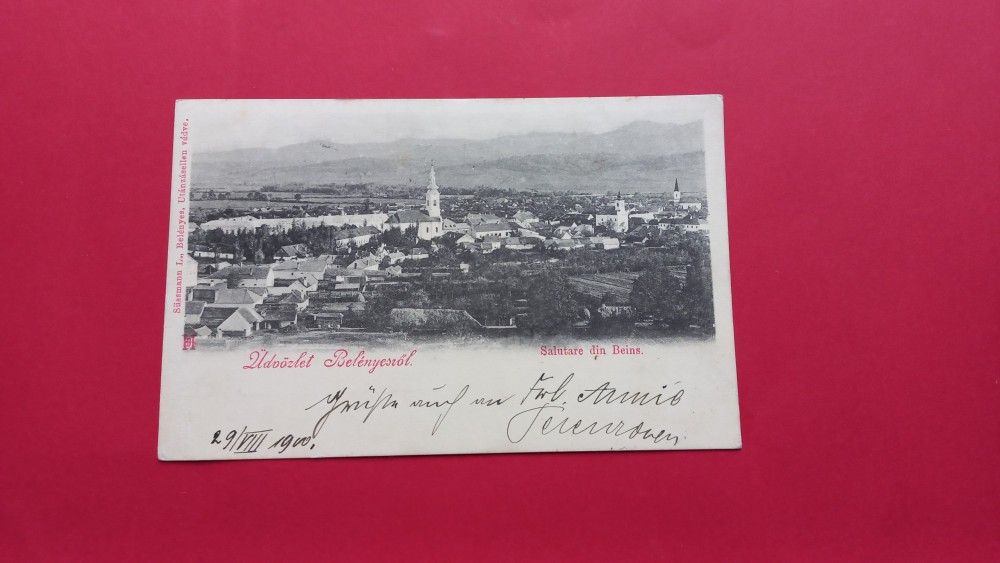 Süssmann L., Belényes. Utánzásellen védve.
Üdvözlet Belényesről.
Salutare din Beins.
Grüße auch an Frl. Annie
29/VIII 1900.